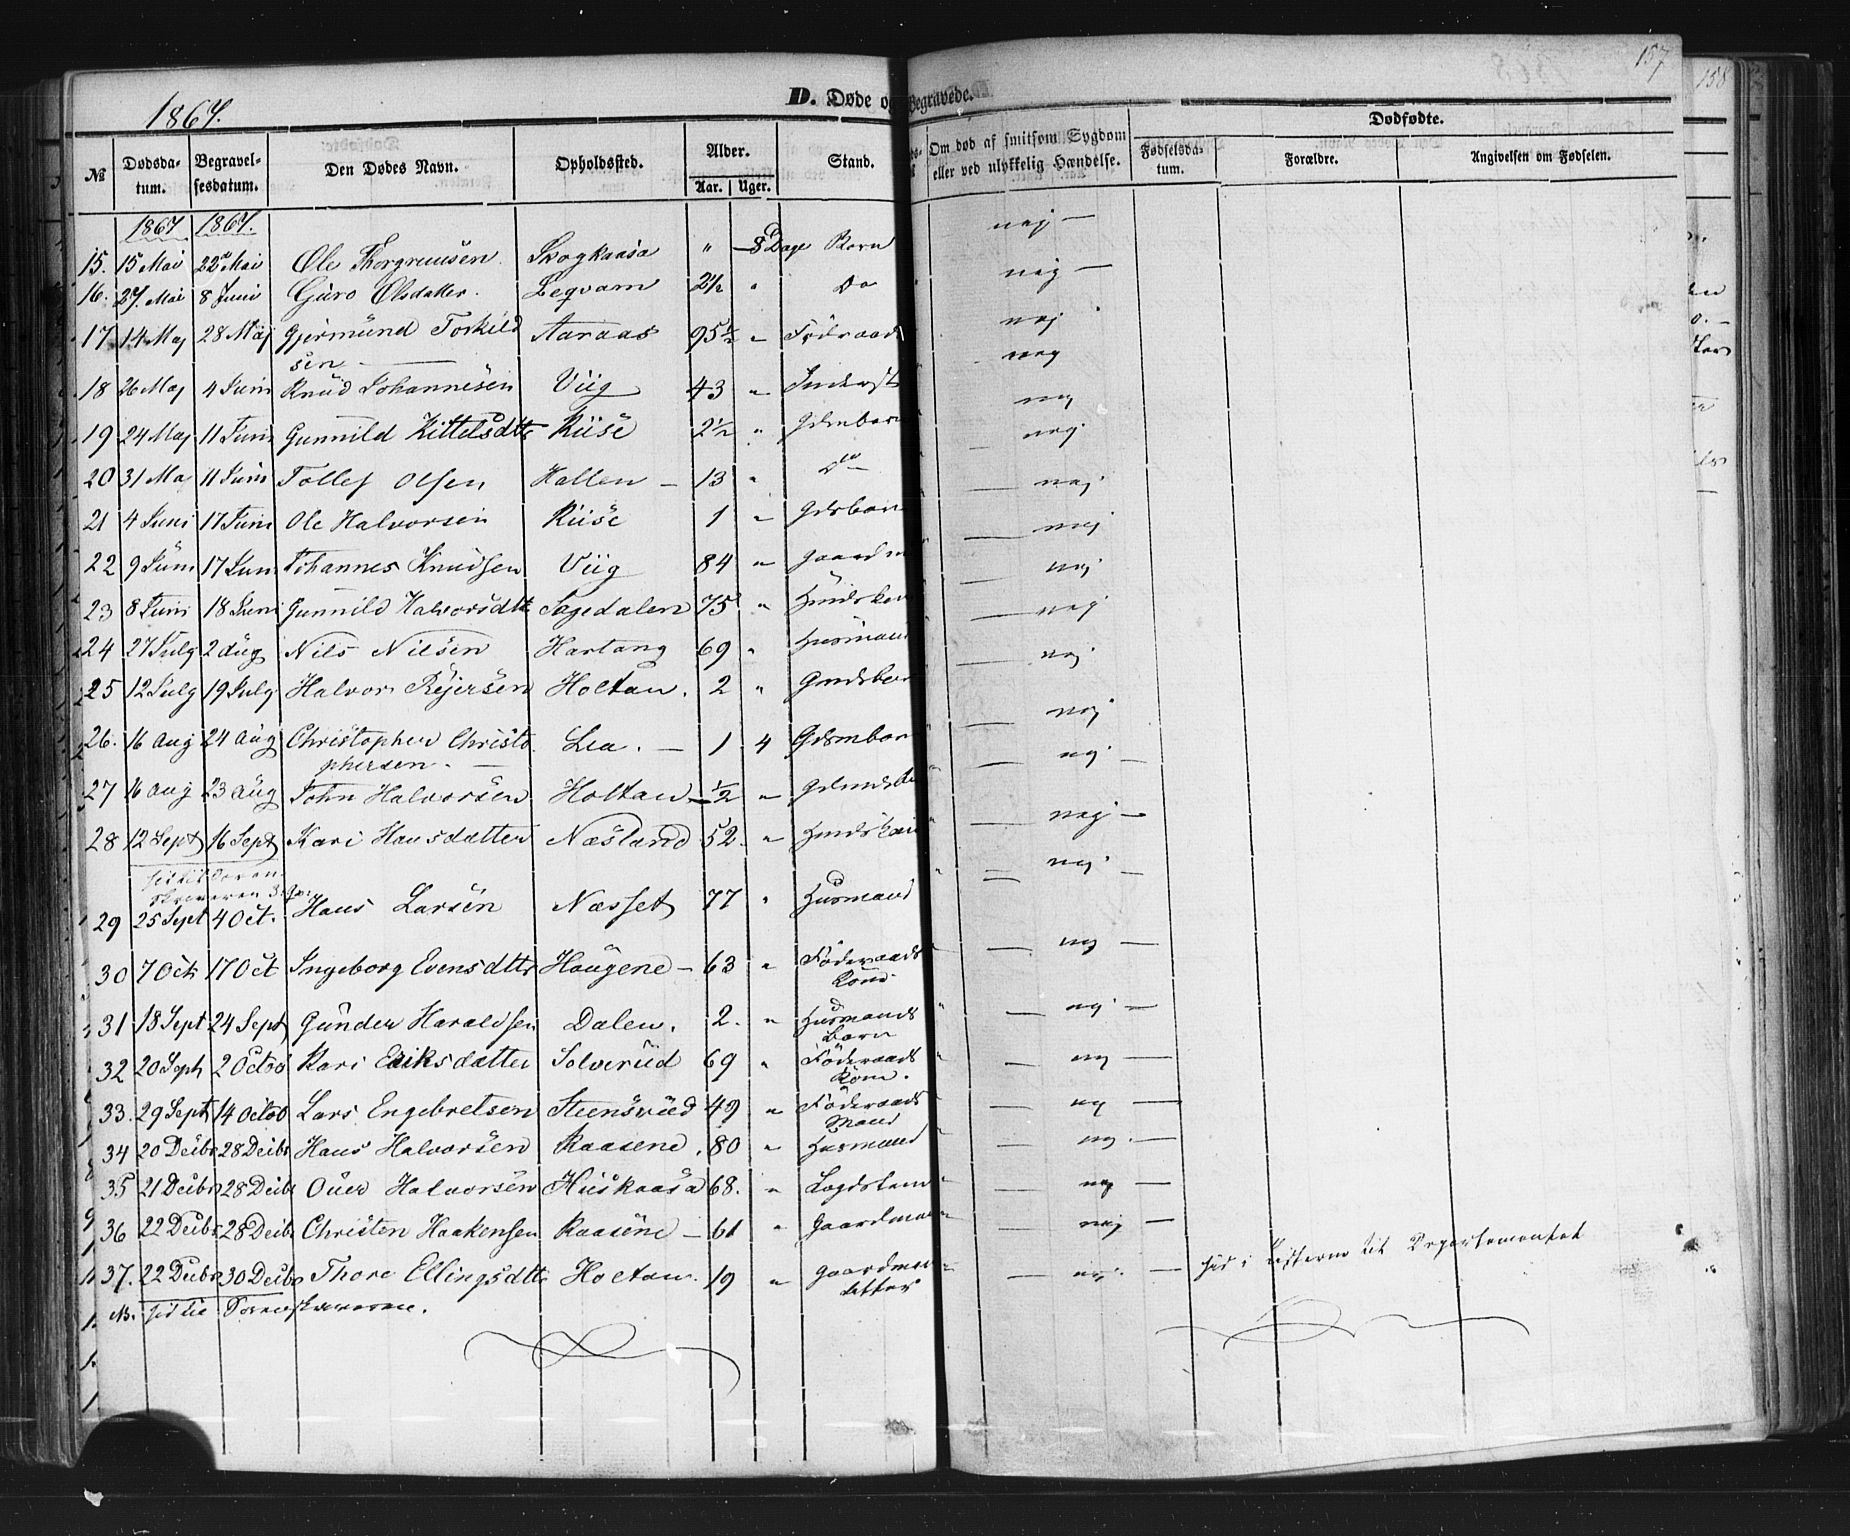 157
158
1867.
D. Døde og Begravede.
№ Dødsda-tum. Begravel-sesdatum. Den Dødes Navn. Opholdssted. Alder. Aar. Uger. Stand. Om død af smitsom Sygdom eller ved ulykkelig Hændelse. Dødfødte. Fødselsda-tum. Forældre. Angivelsen om Fødselen.
1867 1867.
15. 15 Mai 22 Mai Ole Thorgrimsen Skogkaasa " 8 Dage Barn nej —
16. 27. Mai 8 Juni Guro Olsdatter. Legvam 2½ " Do nej —
17 14 Maj 28 Maj Gjermund Torkild Aaraas 95½ " Föderaads nej
sen — nej
18 26 Maj 4 Juni Knud Johannesen Viig 43 " Inderst nej
19 24 Maj 11 Juni Gunnild Kittelsdtr Riise 2½ " Gdmbarn nej
20 31 Maj 11 Juni Tollef Olsen Hallen — 13 " Do — nej
21 4 Juni 17 Juni Ole Halvorsen Riise 1 " Gdsbarn — nej
22 9 Juni 17 Juni Johannes Knudsen Viig 84 " Gaardm — nej
23 8 Juni 18 Juni Gunnild Halvorsdtr Sagedalen 75 " — nej
24 27 Julg 2 Aug Nils Nilsen Hartang 69 " Husmand — nej
25 12 Julg 19 Julg Halvor Rejersen Holtan. 2 " — nej
26. 16 Aug 24 Aug Christopher Christo Lia. — 1 4 Gdsmbarn — nej —
phersen. —
27 16 Aug 23 Aug John Halvorsen Holtan — ½ " — nej —
28 12 Sept 16 Sept Kari Hansdatter Næsland 52. " — nej —
29 25 Sept 4 Oct. Hans Larsen Næsset 77 " Husmand — nej —
30 7 Oct 17 Oct Ingeborg Evensdtr Haugene — 63 " Föderaads — nej —
Kone
31 18 Sept 24 Sept Gunder Haraldsen Dalen. 2. " Husmands — nej —
Barn
32 20 Sept 2 Octob Kari Eriksdatter Solverud 69 " Föderaads — nej —
Kone.
33. 29 Sept 14 Octob Lars Engebretsen Steensrud 49 " Föderaads — nej —
Mand
34 20 Decbr 28 Decbr Hans Halvorsen Kaasene. 80 " Husmand — nej —
35 21 Decbr 28 Decbr Over Halvorsen Huskaasa 68. " Lægdslem — nej —
36 22 Decbr 28 Decbr Christen Haakensen Kaasene — 61 " Gaardman — nej —
37. 22 Decbr 30 Decbr Thore Ellingsdtr Holtan. 19 " Gaardman — nej — Listerne til Departementet
datter
NB.